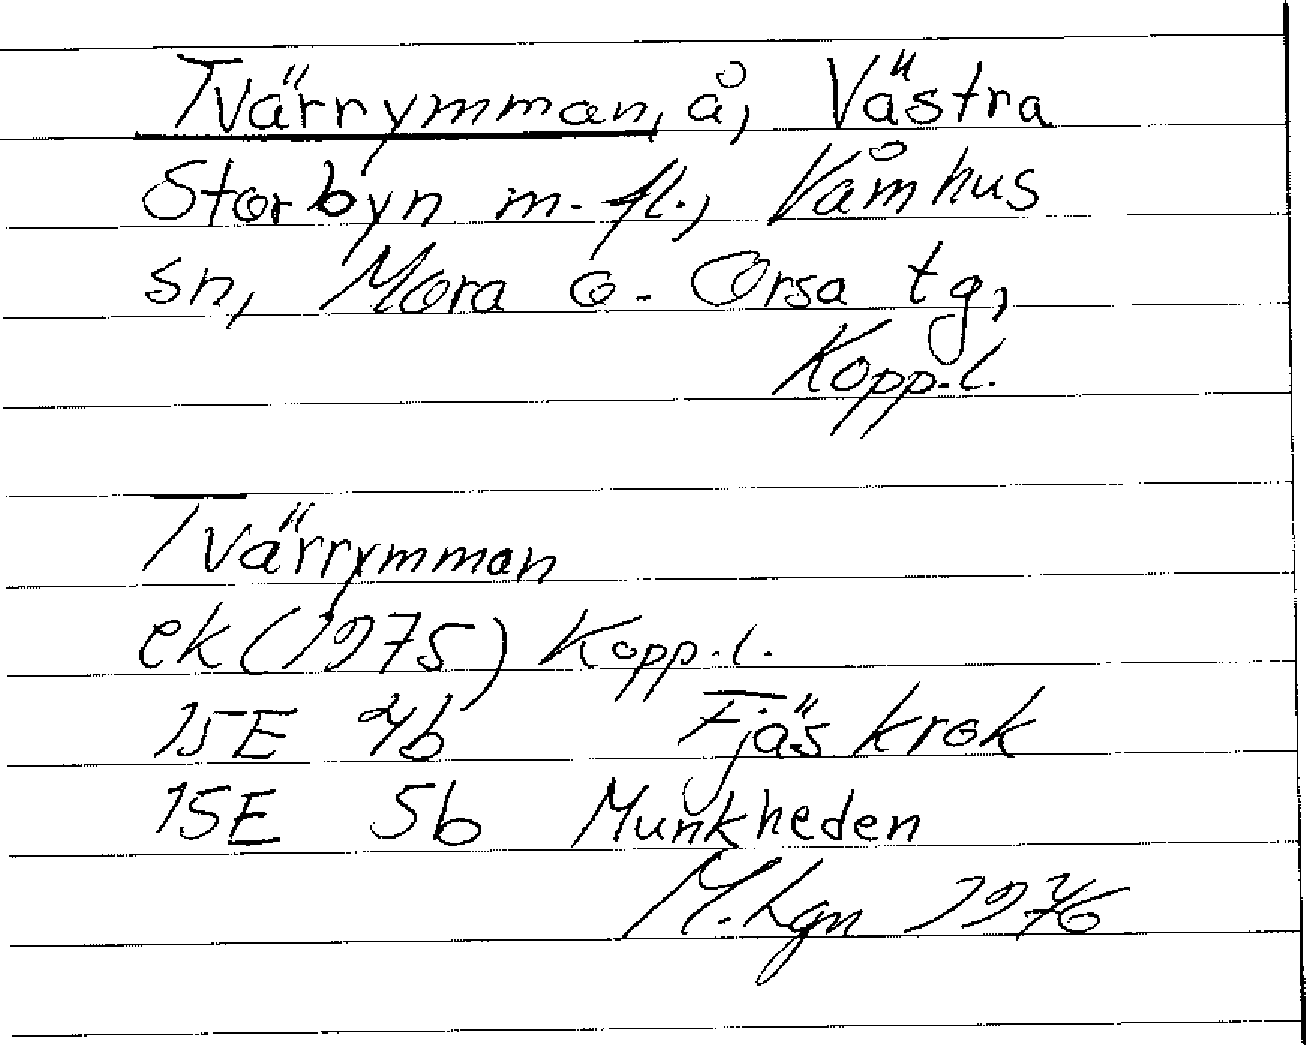 Tvärrymman, å, Västra
Storbyn m.fl., Våmhus
sn, Mora o. Orsa tg,
Kopp.l.
Tvärrymman
ek (1975) Kopp.l.
15E 4b Fjäskrok
15E 5b Munkheden
M.Lgn 1976